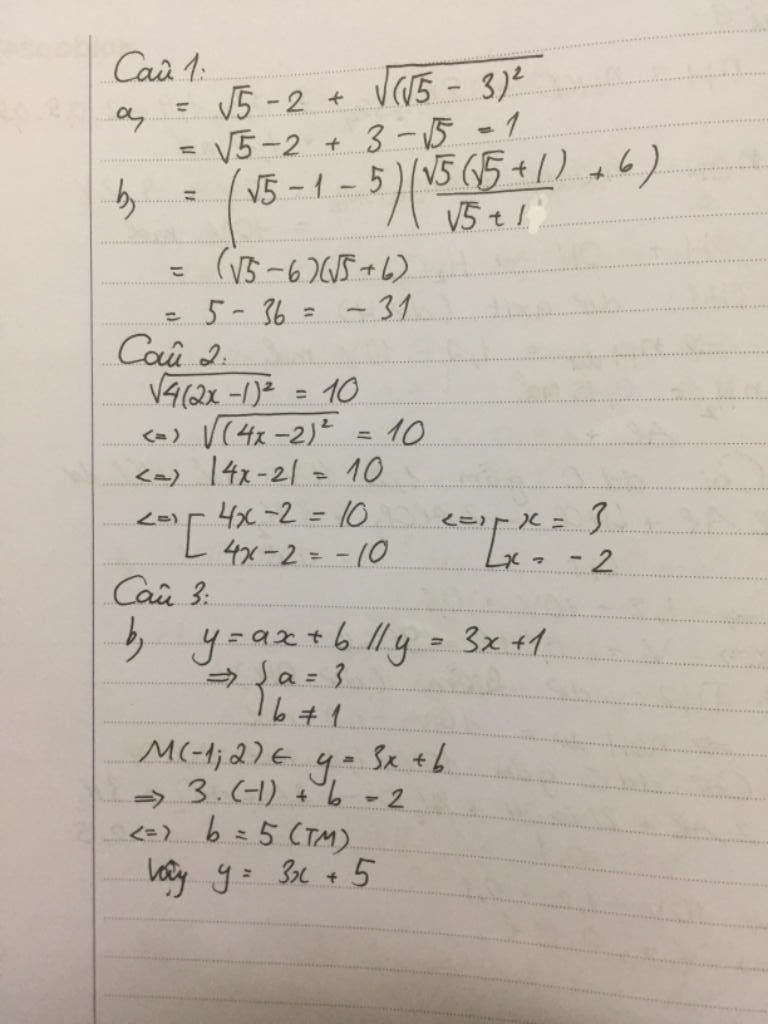 Câu 1:
a, = √5 - 2 + √((√5 - 3)²)
= √5 - 2 + 3 - √5 = 1
b, = (√5 - 1 - 5)(√5(√5 + 1)/(√5 + 1) + 6)
= (√5 - 6)(√5 + 6)
= 5 - 36 = - 31
Câu 2:
√(4(2x - 1)²) = 10
<=> √((4x - 2)²) = 10
<=> |4x - 2| = 10
<=> [ 4x - 2 = 10 <=> [ x = 3
4x - 2 = - 10 x = - 2
Câu 3:
b, y = ax + b // y = 3x + 1
=> { a = 3
b ≠ 1
M(-1; 2) ∈ y = 3x + b
=> 3 . (-1) + b = 2
<=> b = 5 (TM)
Vậy y = 3x + 5